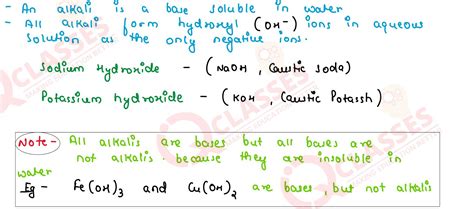 - An alkali is a base soluble in water
- All alkali form hydroxyl (OH⁻) ions in aqueous
solution as the only negative ions.
Sodium Hydroxide - (NaOH, Caustic Soda)
Potassium hydroxide - (KOH, Caustic Potash)
Note- All alkalis are bases but all bases are
not alkalis. because they are insoluble in
water
Eg- Fe(OH)₃ and Cu(OH)₂ are bases, but not alkalis
CLASSES
CLASSES
CLASSES